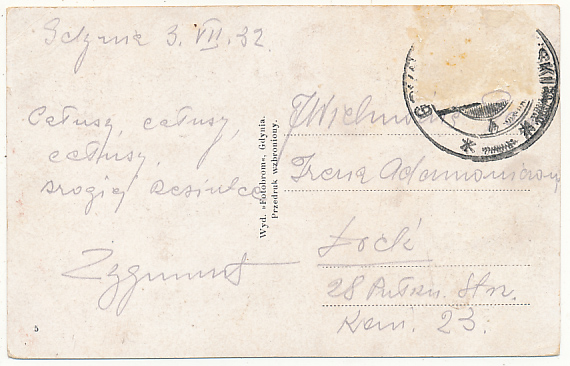 Gdynia 3. VII. 32.
Całusy, całusy
całusy,
srogiej
Zygmunt
5
Wyd. »Fotobrom«, Gdynia.
Przedruk wzbroniony.
Irena Adamowiczówna
Łódź
28 Pułku Str.
Kan. 23.